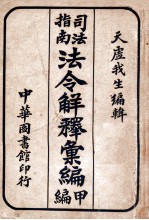 天虛我生編輯
司法
指南
法令解釋彙編
甲
編
中華圖書館印行